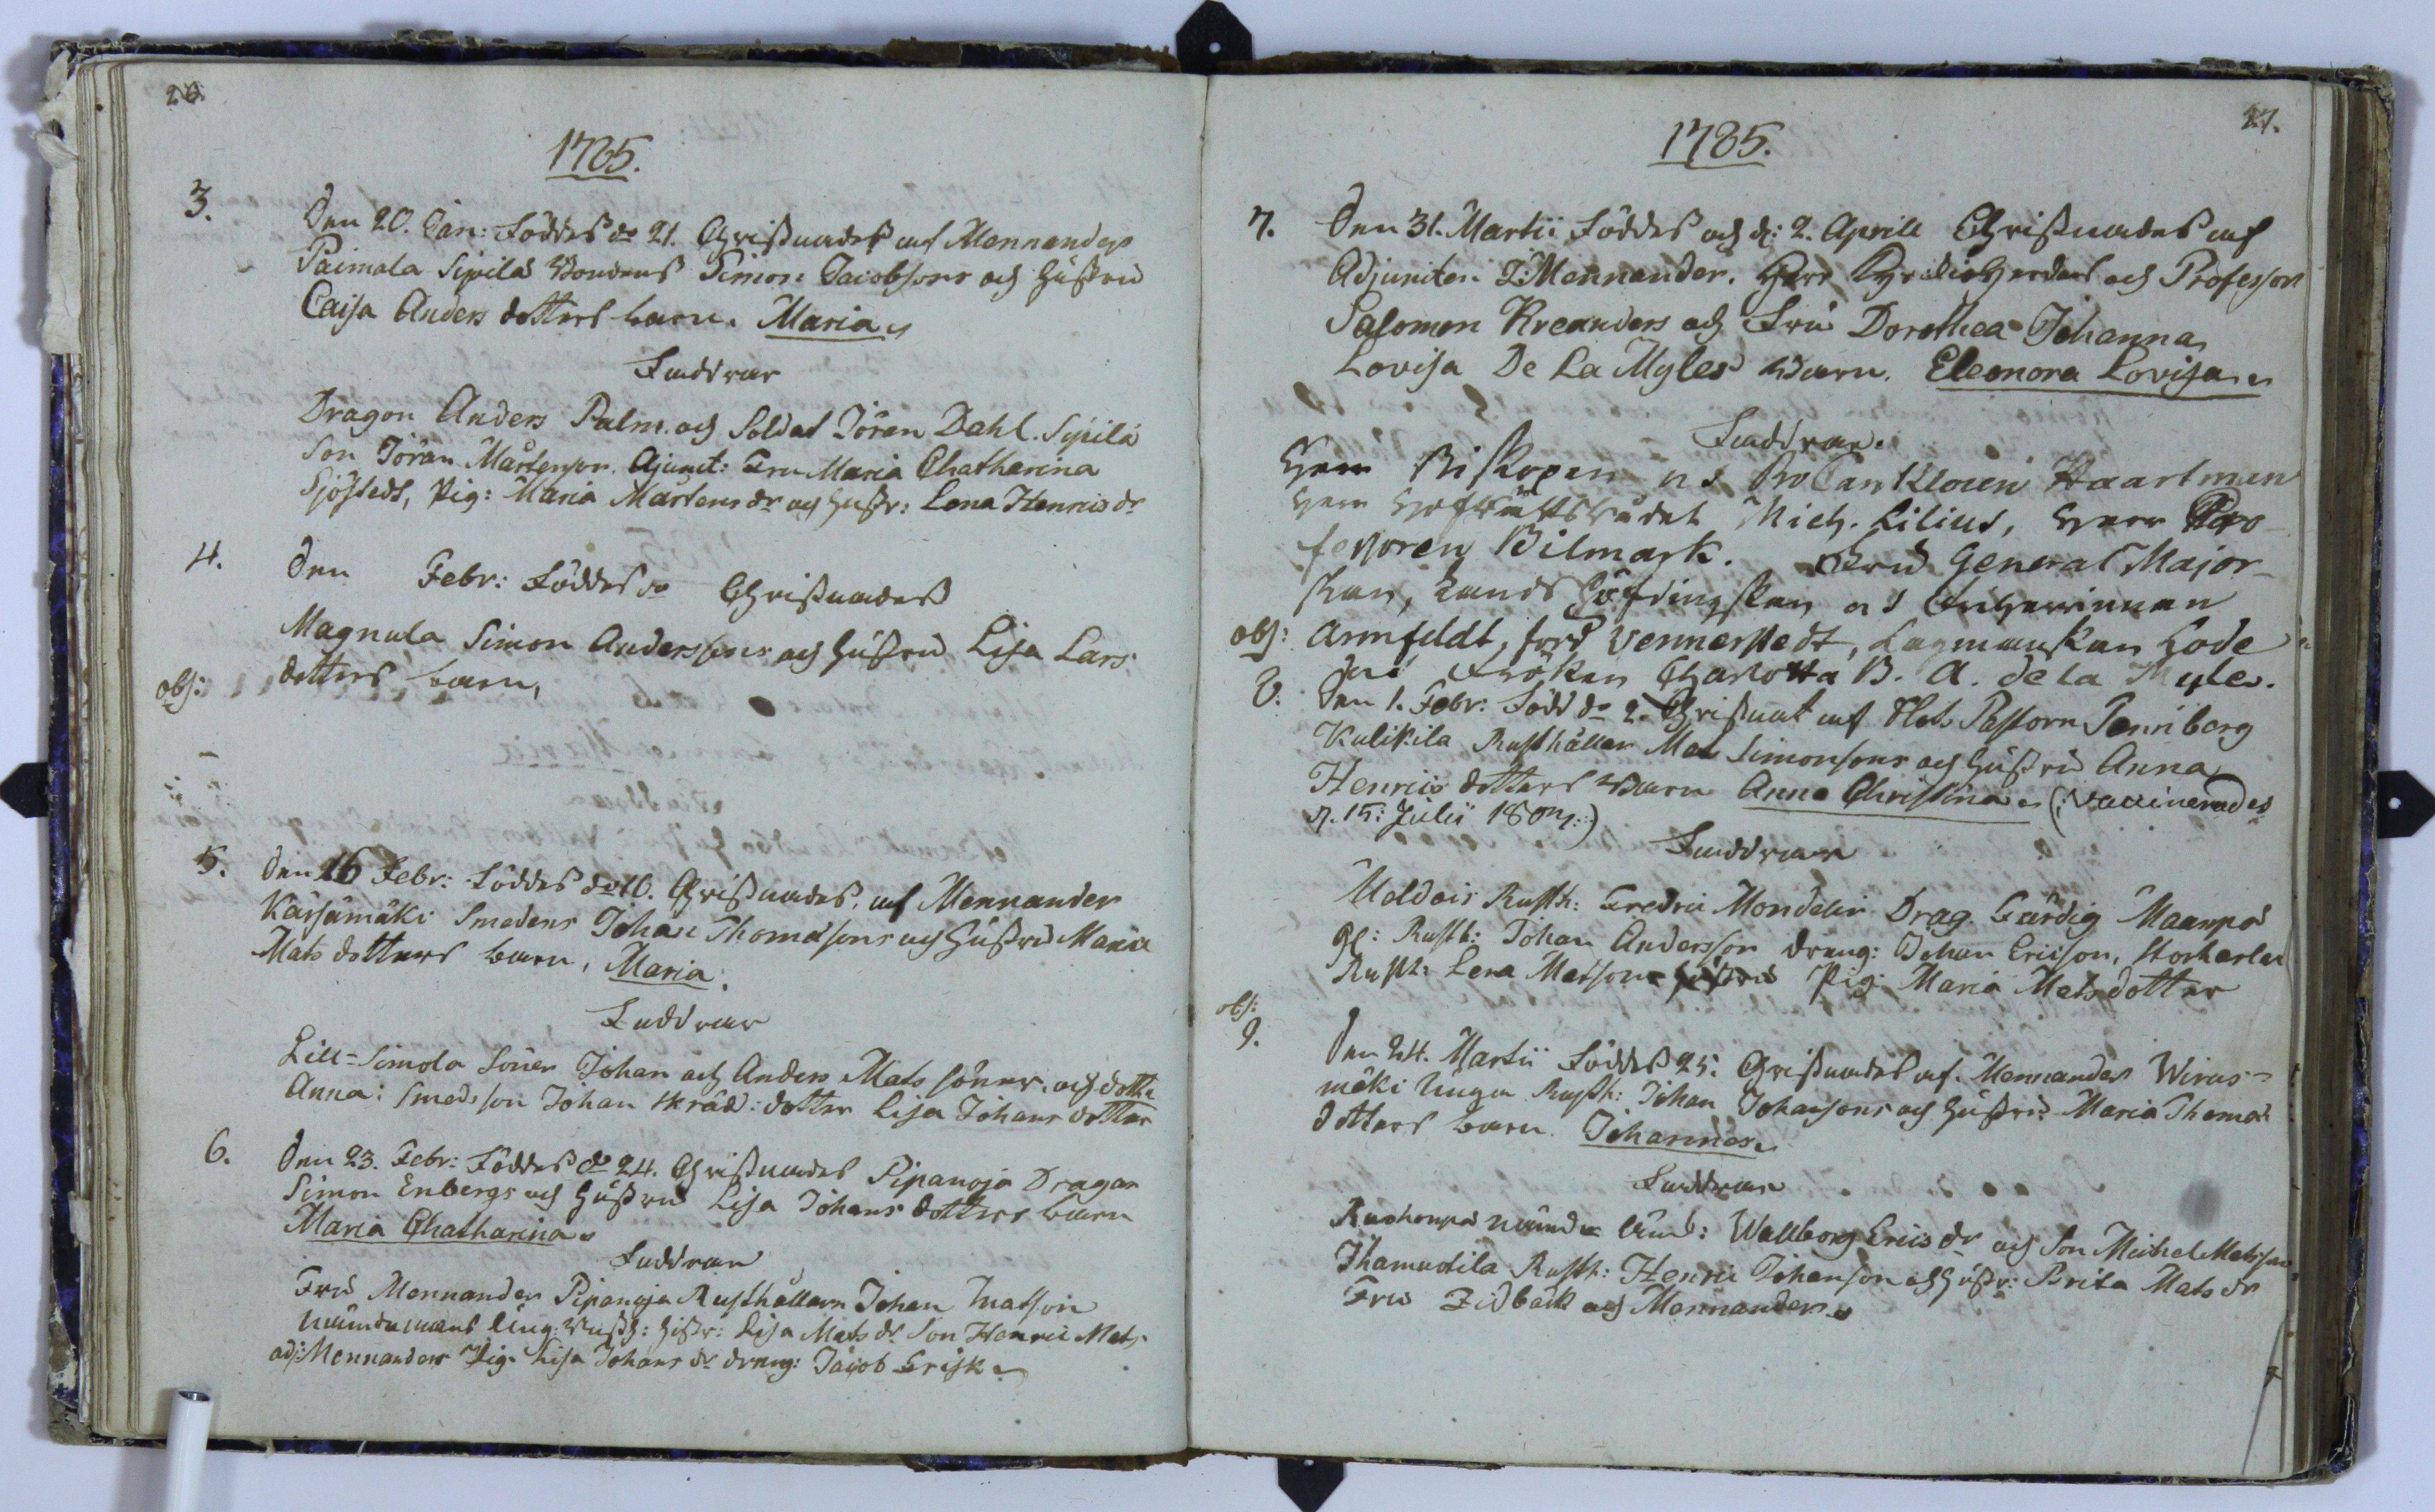 26.
1785.
3. Den 20. Jan: Föddes do 21. Christnades af Mennander
Paimala Sipilä Bondens Simon Jacobsons och Hustru
Caisa Anders dotters barn. Maria
Faddrar
Dragon Anders Palm och Soldat Jöran Dahl. Sipilä
Son Jöran Mårtenson. Ajunct: Fru Maria Chatharina
Sjöstedt, Pig: Maria Mårtens dr och Hustr: Lena Henrics dr
4. Den Febr: Föddes do Christnades
Magnula Simon Anderssons och Hustru Lisa Lars
obs: dotters barn,
5. Den 16 Febr: Föddes do 16. Christnades af Mennander
Kärsämäki Smedens Johan Thomassons och Hustru Maria
Mats dotters barn, Maria.
Faddrar
Lill=Simola Söner Johan och Anders Mats söner, och dotter
Anna: Smeds son Johan skräd: dotter Lisa Johans dotter
6. Den 23. Febr: Föddes do 24. Christnades Pipanoja Dragon
Simon Enbergs och Hustru Lisa Johans dotters barn
Maria Chatharina
Faddrar
Fru Mennander Pipanoja Rusthållaren Johan Matson
Lisa Mats dr Son Henric Mats.
adj: Mennanders Pig. Lisa Johans dr dräng: Jacob Erisk
27.
1785.
7. Den 31. Martii Föddes och d: 2. Aprill Christnades af
Adjuncten Z: Mennander. Herr Kyrckioherdens och Professor
Salomon Kreanders och Fru Dorothea Johanna
Lovisa De La Myles Barn. Eleonora Lovisa
Faddrar.
Herr Biskopen och ProCanckleuren Haartman
Herr Hofrättsrådet Mich. Lilius, Herr Pro-
fessoren Bilmark. Fru General Major-
skan, Landshöfdingskan och Friherrinnan
obs: Armfeldt, förd Vennerstedt, Lagmanskan Gode
och Fröken Charlotta B. A. de la Myle.
8. Den 1. Febr: Född do 2. Christnat af Slots Pastorn Pennberg
Kulikila Rusthållar Mats Simonsons och Hustru Anna
Henrics dotters Barn Anna Christina (: Vaccinerades
d. 15: Julii 1807:)
Faddrar
Moldois Rusth: Fredric Mondelin Drag. Färdig Maanpä
gl: Rusth: Johan Andersson dräng: Johan Ericson, Storherla
Rusth: Lena Matsons Hustru Pig: Maria Matsdotter
obs:
9. Den 24. Martii Föddes 25: Christnades af Mennander Wirus=
mäki Unga Rusth: Johan Johansons och Hustru Maria Thomas
dotters barn. Johannes
Faddrar
Wallborg Erics dr och Son Michel Matsson
Rusth: Henric Johanson och Hustr: Brita Mats dr
Fru Zidbäck och Mennander